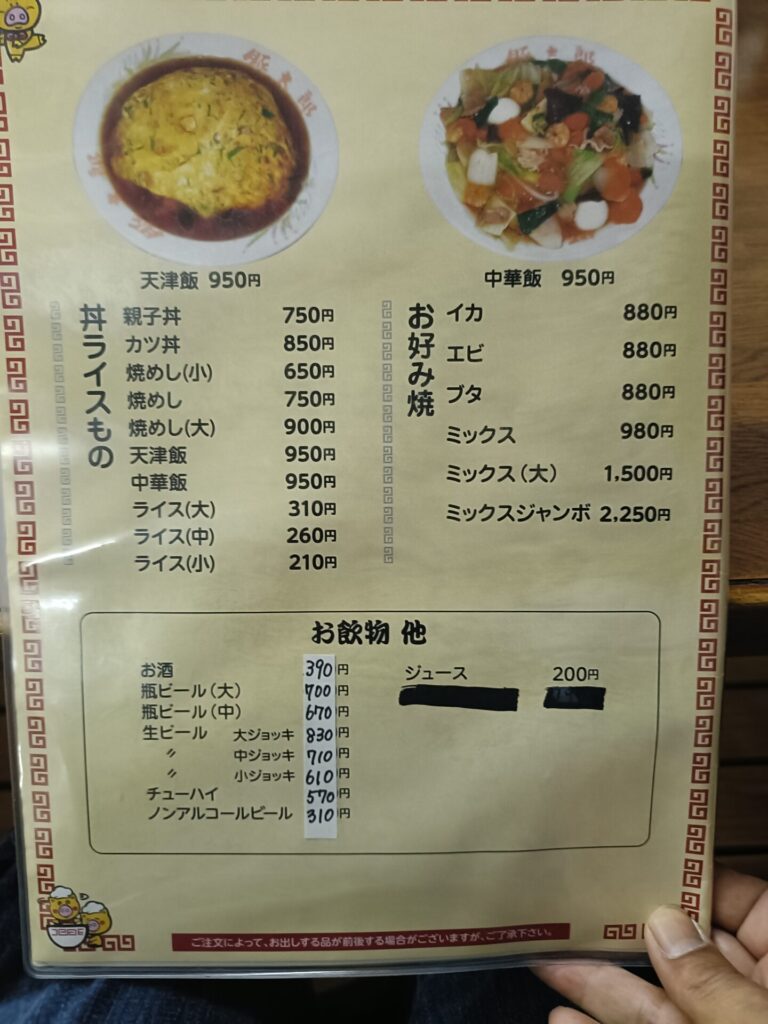 豚太郎
豚太郎
天津飯 950円
中華飯 950円
丼ライスもの
親子丼 750円
カツ丼 850円
焼めし(小) 650円
焼めし 750円
焼めし(大) 900円
天津飯 950円
中華飯 950円
ライス(大) 310円
ライス(中) 260円
ライス(小) 210円
お好み焼
イカ 880円
エビ 880円
ブタ 880円
ミックス 980円
ミックス(大) 1,500円
ミックスジャンボ 2,250円
お飲物 他
お酒 390円
瓶ビール(大) 700円
瓶ビール(中) 670円
生ビール 大ジョッキ 830円
〃 中ジョッキ 710円
〃 小ジョッキ 610円
チューハイ 570円
ノンアルコールビール 310円
ジュース 200円
ご注文によって、お出しする品が前後する場合がございますが、ご了承下さい。